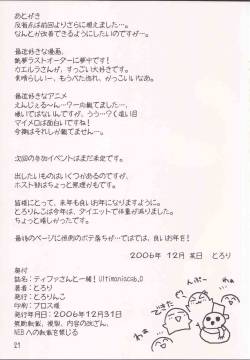 あとがき
反省点は前回よりさらに増えました…。
なんとか改善できるようにしたいのですが…。
最近好きな漫画。
銃夢ラストオーダーに夢中です！
カエルラさんが、すっごい大好きです。
素晴らしいー、もうべた惚れ、がっこいいなぁ。
最近好きなアニメ
えんじぇる〜ん…？一向観てました…。
嫌いではないんですが、ううっ？く追い目
マイメロは面白いですね！
今時はそれしか観てません…。
次回の参加イベントはまだ未定です。
出したいものはいくつかあるのですが、
ホスト部はちょっと無理かもです。
皆様にとって、来年も良いお年になりますように。
とろりんこは今年は、ダイエットで体重が減りました。
ちょっと嬉しかったです。
最後のページに恒例のボテ落ちが…ではでは、良いお年を！
2006年 12月 某日 とろり
奥付
誌名：ティファさんと一緒！Ultimaniacab,Ω
著者：とろり
発行：とろりんこ
印刷：プロス様
発行年月日：2006年12月31日
無断転載、複製、内容の改ざん、
WEBへの転載を禁じる
21